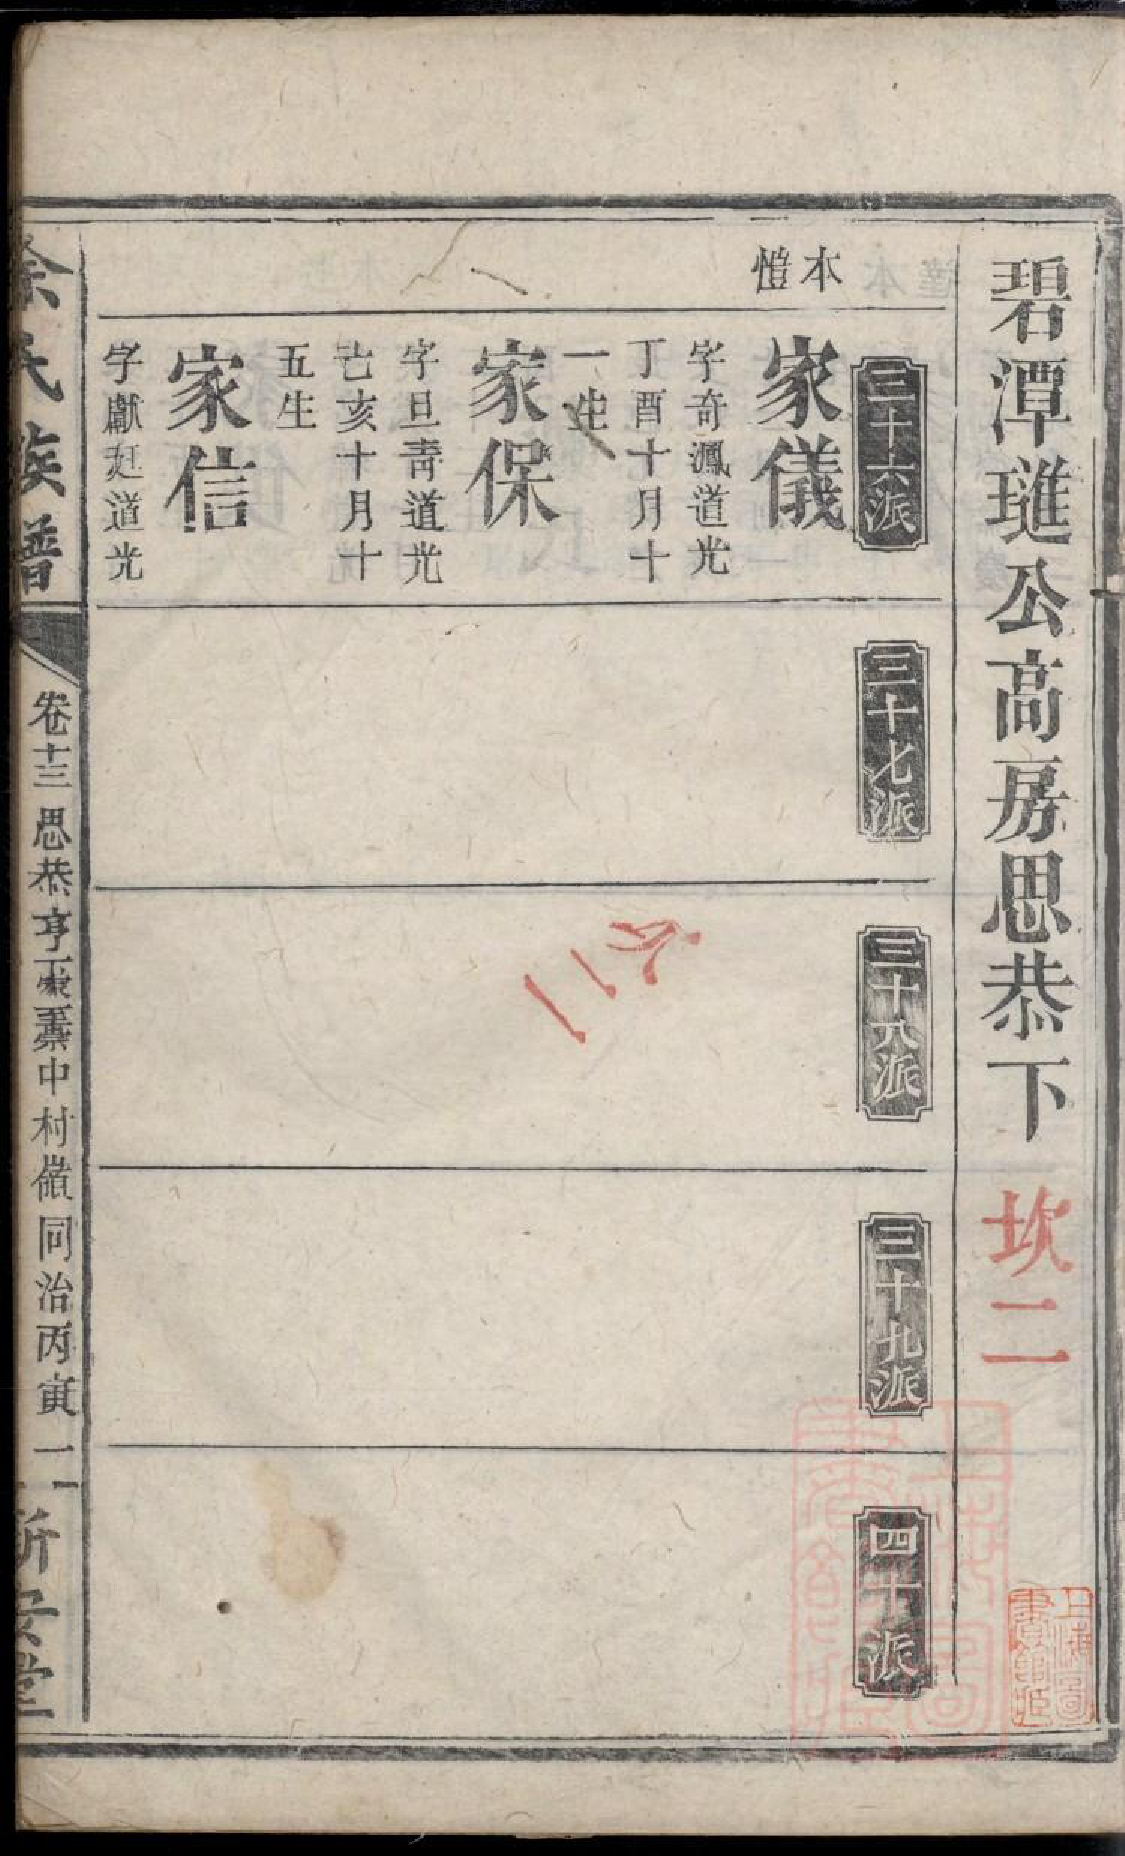 碧潭璡公高房思恭下 坎二
三十六派
三十七派
三十八派
三十九派
四十派
本愷
家儀
字奇鳳道光
丁酉十月十
一生
家保
字旦靑道光
己亥十月十
五生
家信
字獻廷道光
徐氏族譜
卷十三 思恭亨
中村
同治丙寅
二
新安堂
上海圖書館藏